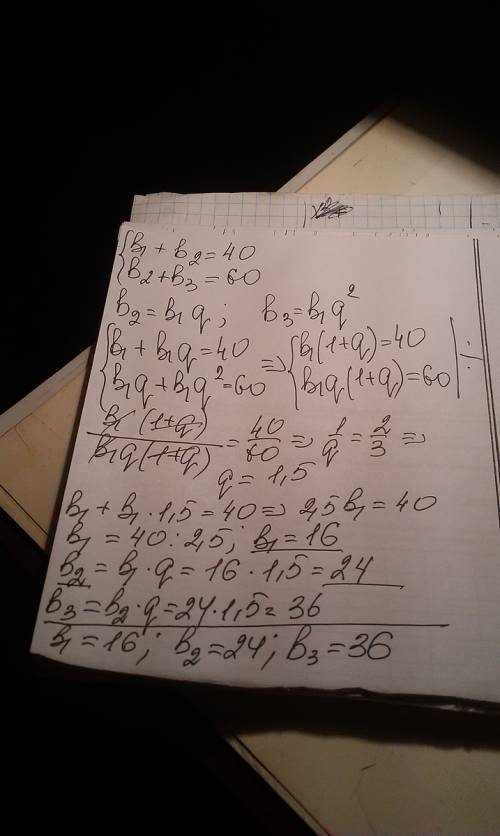 {b₁ + b₂ = 40
{b₂ + b₃ = 60
b₂ = b₁q ; b₃ = b₁q²
{b₁ + b₁q = 40 => {b₁(1+q) = 40 | ÷
{b₁q + b₁q² = 60 {b₁q(1+q) = 60
b₁(1+q) / b₁q(1+q) = 40/60 => 1/q = 2/3 =>
q = 1,5
b₁ + b₁ · 1,5 = 40 => 2,5b₁ = 40
b₁ = 40 : 2,5 ; b₁ = 16
b₂ = b₁ · q = 16 · 1,5 = 24
b₃ = b₂ · q = 24 · 1,5 = 36
b₁ = 16 ; b₂ = 24 ; b₃ = 36